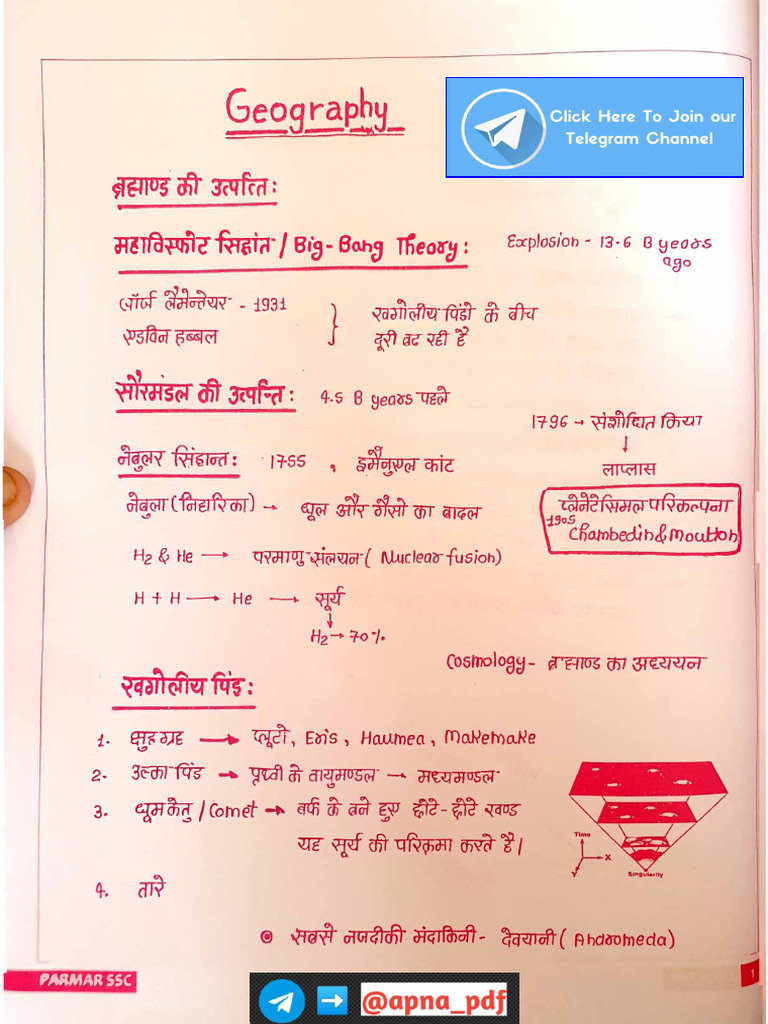 Geography
Click Here To Join our
Telegram Channel
ब्रह्माण्ड की उत्पत्ति:
महाविस्फोट सिद्धांत / Big-Bang Theory:
Explosion - 13.6 B years
ago
जॉर्ज लैमेन्तेयर - 1931
एडविन हब्बल
खगोलीय पिंडो के बीच
दूरी बढ रही है
सौरमंडल की उत्पत्ति:
4.5 B years पहले
1796 → संशोधित किया
↓
लाप्लास
नेबुलर सिंद्धान्त: 1755 , इमैनुएल कांट
प्लेनेटेसिमल परिकल्पना
1905
Chambedin & Moulton
नेबुला (निहारिका) → धूल और गैसो का बादल
H2 & He → परमाणु संलयन ( Nuclear fusion)
H + H → He → सूर्य
↓
H2 → 70%
Cosmology - ब्रह्माण्ड का अध्ययन
खगोलीय पिंड:
1. क्षुद्रग्रह → प्लूटो, Eris, Haumea, Makemake
2. उल्का पिंड → पृथ्वी के वायुमण्डल → मध्यमण्डल
3. धूमकेतु / Comet → बर्फ के बने हुए छोटे-छोटे खण्ड
यह सूर्य की परिक्रमा करते है।
Time
X
Y
Singularity
4. तारे
सबसे नजदीकी मंदाकिनी - देवयानी ( Andromeda)
PARMAR SSC
1
@apna_pdf